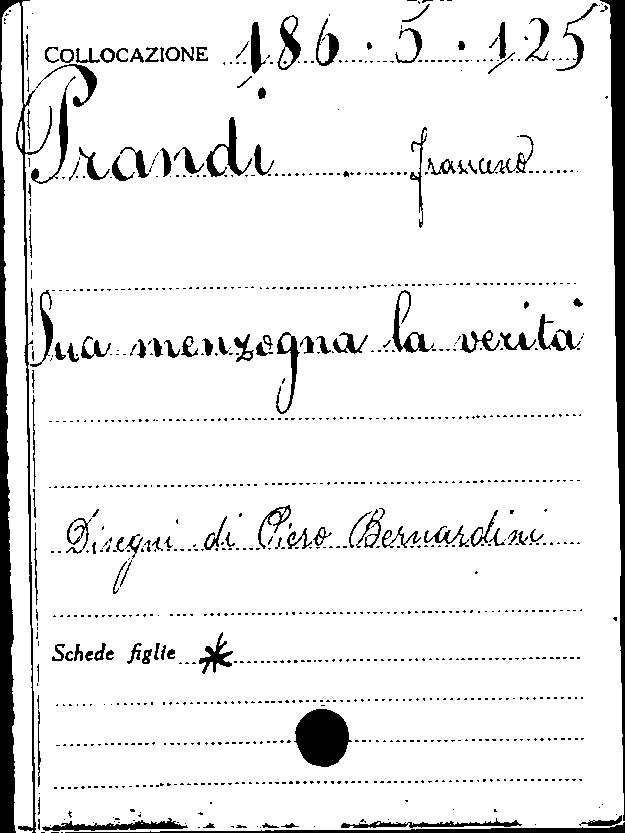 COLLOCAZIONE 186.5.125
Prandi Francesco
Sua menzogna la verità
Disegni di Piero Bernardini
Schede figlie *